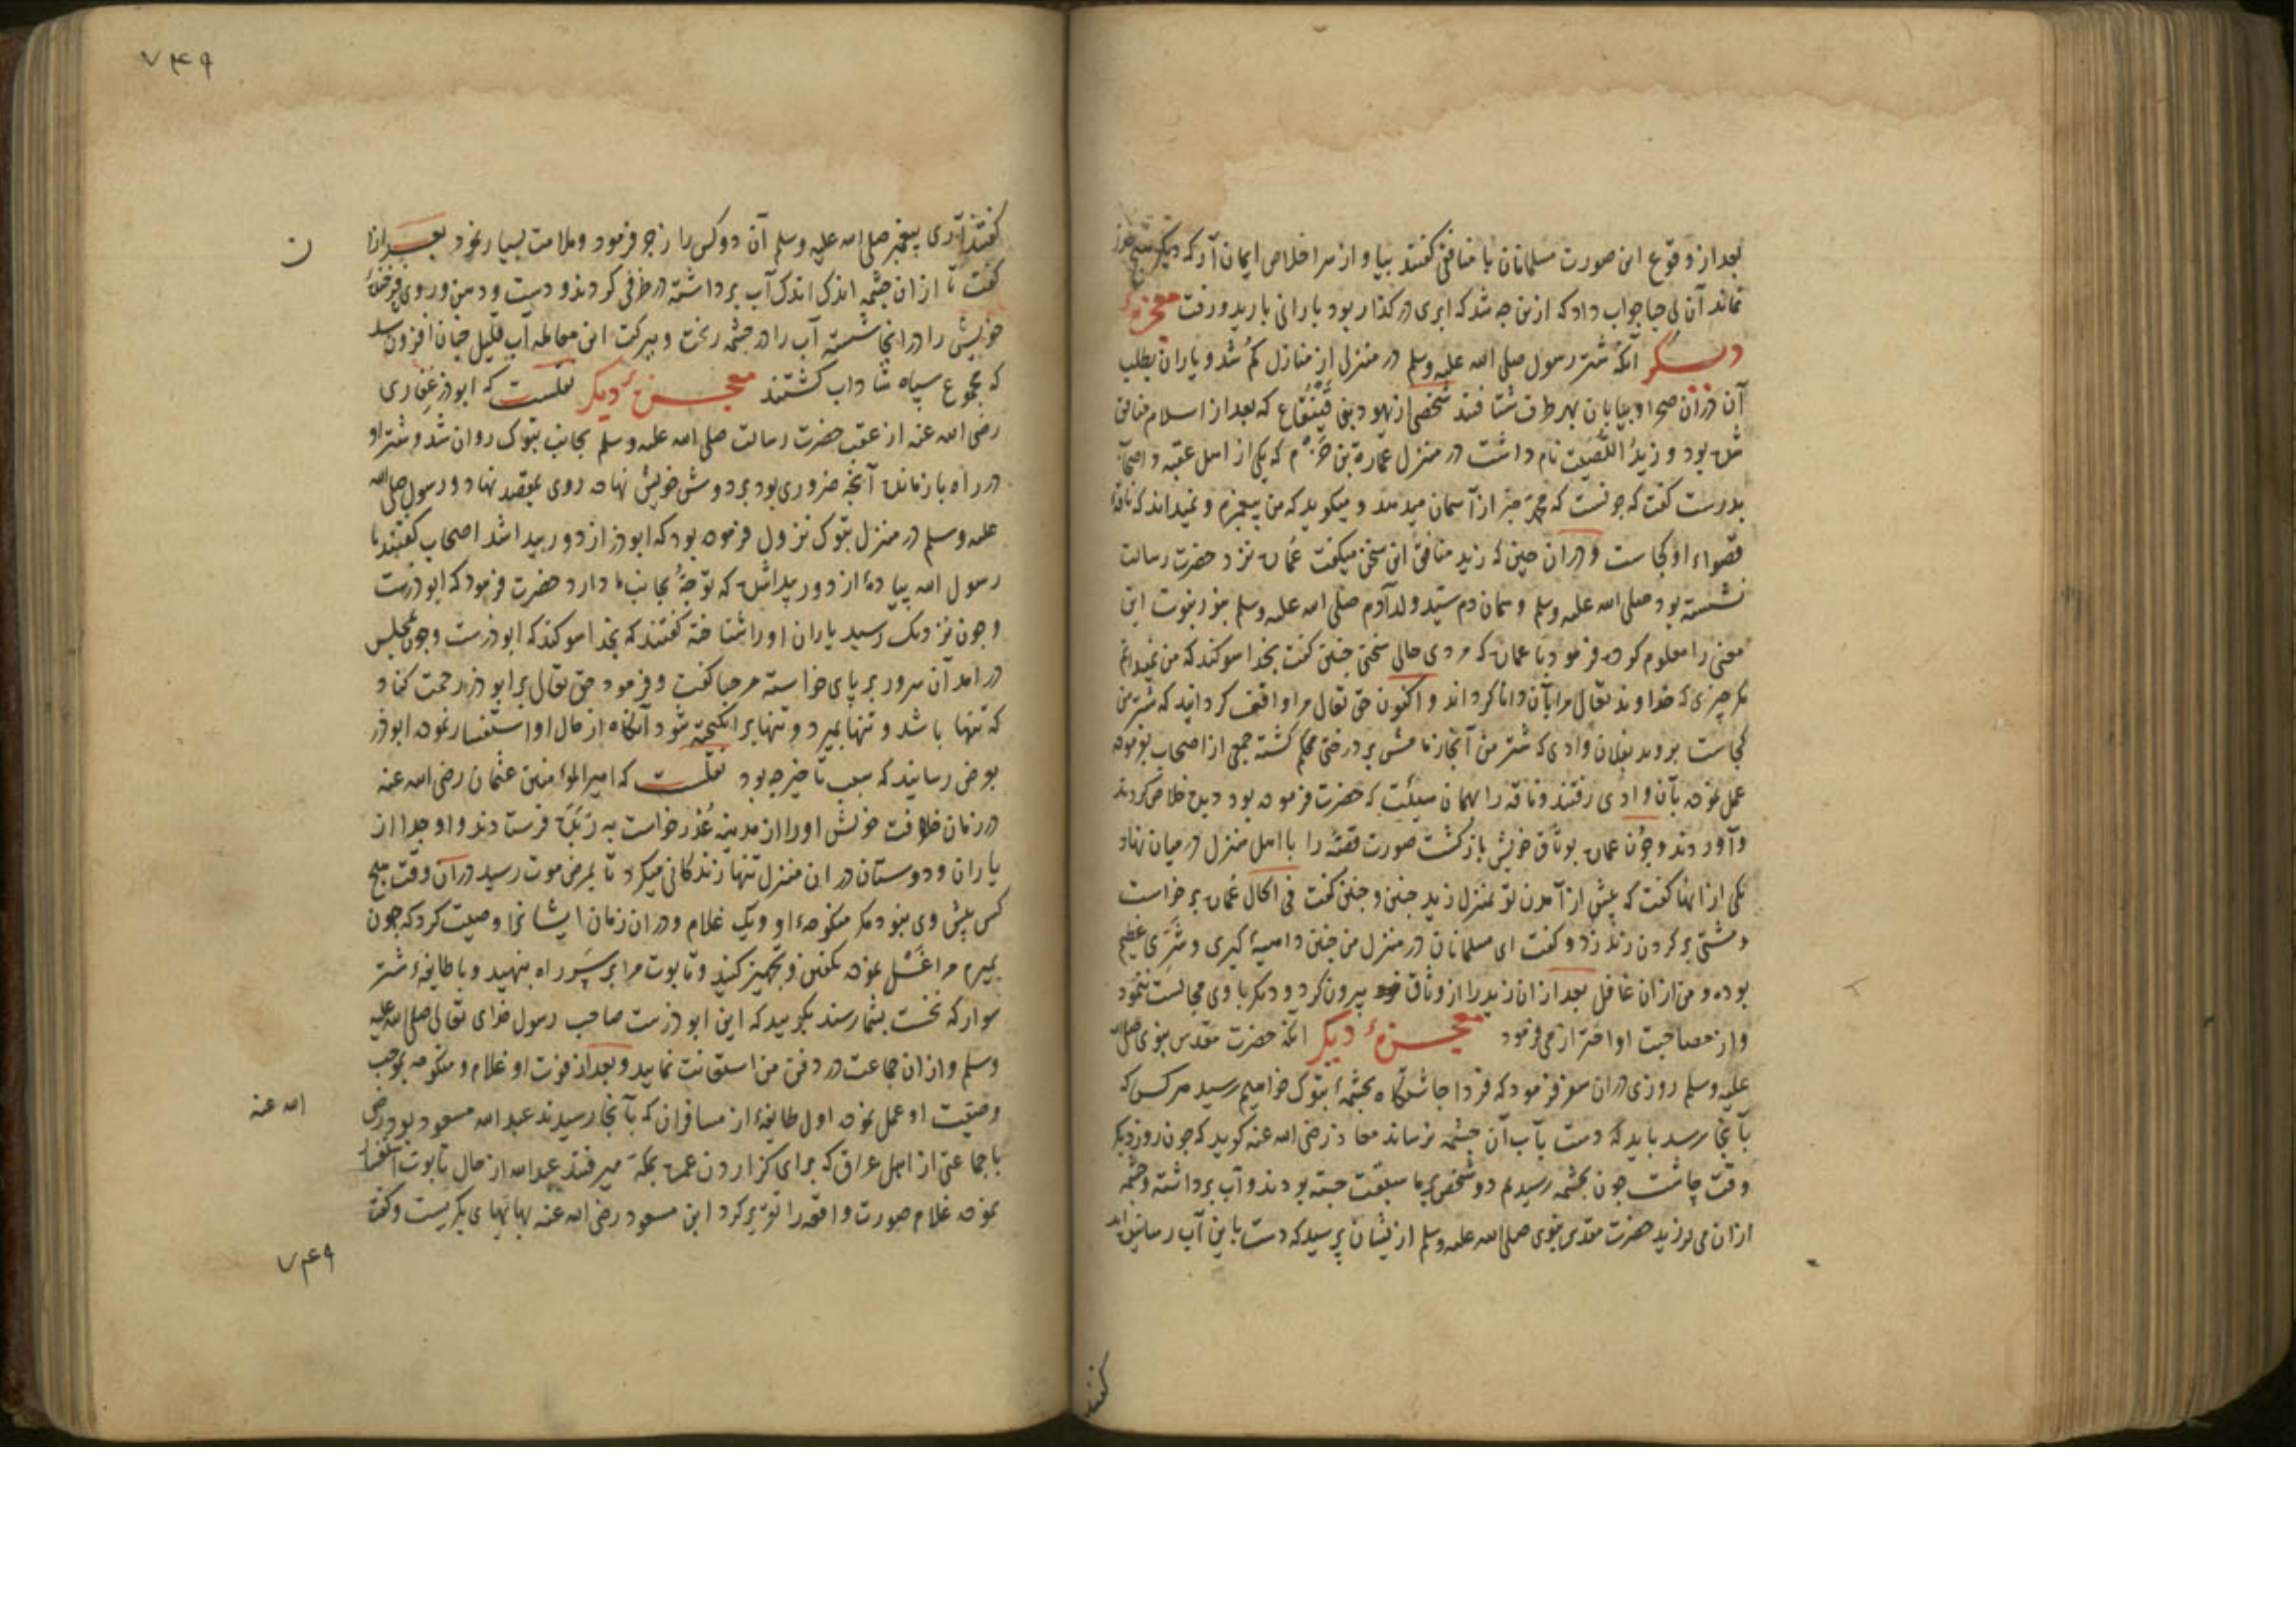 بعد از وقوع این صورت مسلمانان با منافق گفتند بیا و از سر اخلاص ایمان آر که دیگر هیچ عذر
نماند آن بی حیا جواب داد که ازین چه شد که ابری در گذار بود بارانی بارید و رفت معجزهٔ
دیگر آنکه شتر رسول صلی الله علیه وسلم در منزلی از منازل کم شد و یاران بطلب
آن دران صحرا و بیابان بهر طرف شتافتند شخصی از یهود بنی قینقاع که بعد از اسلام منافق
شده بود و زید اللصیت نام داشت در منزل عمارة بن حزم که یکی از اهل عقبه و اصحاب
بدرست گفت که چونست که محمد خبر از آسمان میدهد و میکوید که من پیغمبرم و نمیداند که ناقهٔ
قصواء او کجاست و دران حین که زید منافق این سخن میکفت عماره نزد حضرت رسالت
نشسته بود صلی الله علیه وسلم و همان دم سید ولد آدم صلی الله علیه وسلم بنور نبوت این
معنی را معلوم کرده فرمود با عماره که مردی حالی سخنی چنین گفت بخدا سوکند که من نمیدانم
مگر چیزی که خداوند تعالی مرا بآن دانا کرداند و اکنون حق تعالی مرا واقف کردانید که شتر من
کجاست بروید بفلان وادی که شتر من آنجا زمامش بر درختی محکم کشته جمعی از اصحاب بفرموده
عمل نموده بآن وادی رفتند و ناقه را بهمان هیئت که حضرت فرموده بود دیده خلاص کردند
و آوردند و چون عماره بوثاق خویش بازکشت صورت قصه را با اهل منزل در میان نهاد
یکی از انها کفت که پیش از آمدن تو بمنزل زید چنین و چنین گفت فی الحال عماره برخاست
و مشتی بر کردن زید زد و کفت ای مسلمانان در منزل من چنین داهیهٔ کبری و شری عظیم
بوده و من ازان غافل بعد ازان زید را از وثاق خود بیرون کرد و دیگر با وی مجالست ننمود
و از مصاحبت او احتراز می فرمود معجزهٔ دیگر آنکه حضرت مقدس نبوی صلی الله
علیه وسلم روزی دران سفر فرمود که فردا چاشتگاه بچشمهٔ تبوک خواهیم رسید هر کس که
بآنجا رسد باید که دست بآب آن چشمه نرساند معاذ رضی الله عنه کوید که چون روز دیگر
وقت چاشت چون بچشمه رسیدیم دو شخص بر ما سبقت جسته بودند و آب برداشته و چشمه
ازان می لرزید حضرت مقدس نبوی صلی الله علیه وسلم ازیشان پرسید که دست باین آب رسانیده اید
گفتند
۷۴۹
گفتند آری پیغمبر صلی الله علیه وسلم آن دو کس را زجر فرمود و ملامت بسیار نمود بعد ازان
ن
گفت تا ازان چشمه اندک اندک آب برداشته در ظرفی کردند و دست و دهن و روی فرخندهٔ
خویش را در انجا شسته آب را در چشمه ریخت و ببرکت این معامله آب قلیل چنان افزون شد
که مجموع سپاه شاداب کشتند معجزهٔ دیگر نقلست که ابوذر غفاری
رضی الله عنه از عقب حضرت رسالت صلی الله علیه وسلم بجانب تبوک روان شد و شتر او
در راه بازمانده آنچه ضروری بود بر دوش خویش نهاده روی بمقصد نهاد و رسول صلی الله
علیه وسلم در منزل تبوک نزول فرموده بود که ابوذر از دور پیدا شد اصحاب گفتند یا
رسول الله پیادهٔ از دور پیدا شده که توجه بجانب ما دارد حضرت فرمود که ابوذرست
و چون نزدیک رسید یاران او را شناخته گفتند که بخدا سوکند که ابوذرست و چون بمجلس
درآمد آن سرور بر پای خواسته مرحبا گفت و فرمود حق تعالی بر ابوذر رحمت کناد
که تنها باشد و تنها بمیرد و تنها برانکیخته شود آنکاه از حال او استفسار نموده ابوذر
بعرض رسانید که سبب تاخیر چه بود نقلست که امیرالمؤمنین عثمان رضی الله عنه
در زمان خلافت خویش او را از مدینه عذر خواست به ربذه فرستادند و او جدا از
یاران و دوستان در ان منزل تنها زندکانی میکرد تا بمرض موت رسید در آن وقت هیچ
کس پیش وی نبود مکر منکوحهٔ او و یک غلام و دران زمان ایشانرا وصیت کرد که چون
بمیرم مرا غسل نموده تکفین و تجهیز کنید و تابوت مرا بر سر راه بنهید و با طایفهٔ شتر
سوار که نخست بشما رسند بکویید که این ابوذرست صاحب رسول خدای تعالی صلی الله علیه
وسلم و ازان جماعت در دفن من استعانت نمایید و بعد از فوت او غلام و منکوحه بموجب
وصیت او عمل نموده اول طایفهٔ از مسافران که بآنجا رسیدند عبد الله مسعود بود رضی
الله عنه
با جماعتی از اهل عراق که برای کزاردن عمره بمکه میرفتند عبد الله از حال تابوت استفسار
نموده غلام صورت واقعه را تقریر کرد ابن مسعود رضی الله عنه بهایهای بکریست و کفت
۷۴۹